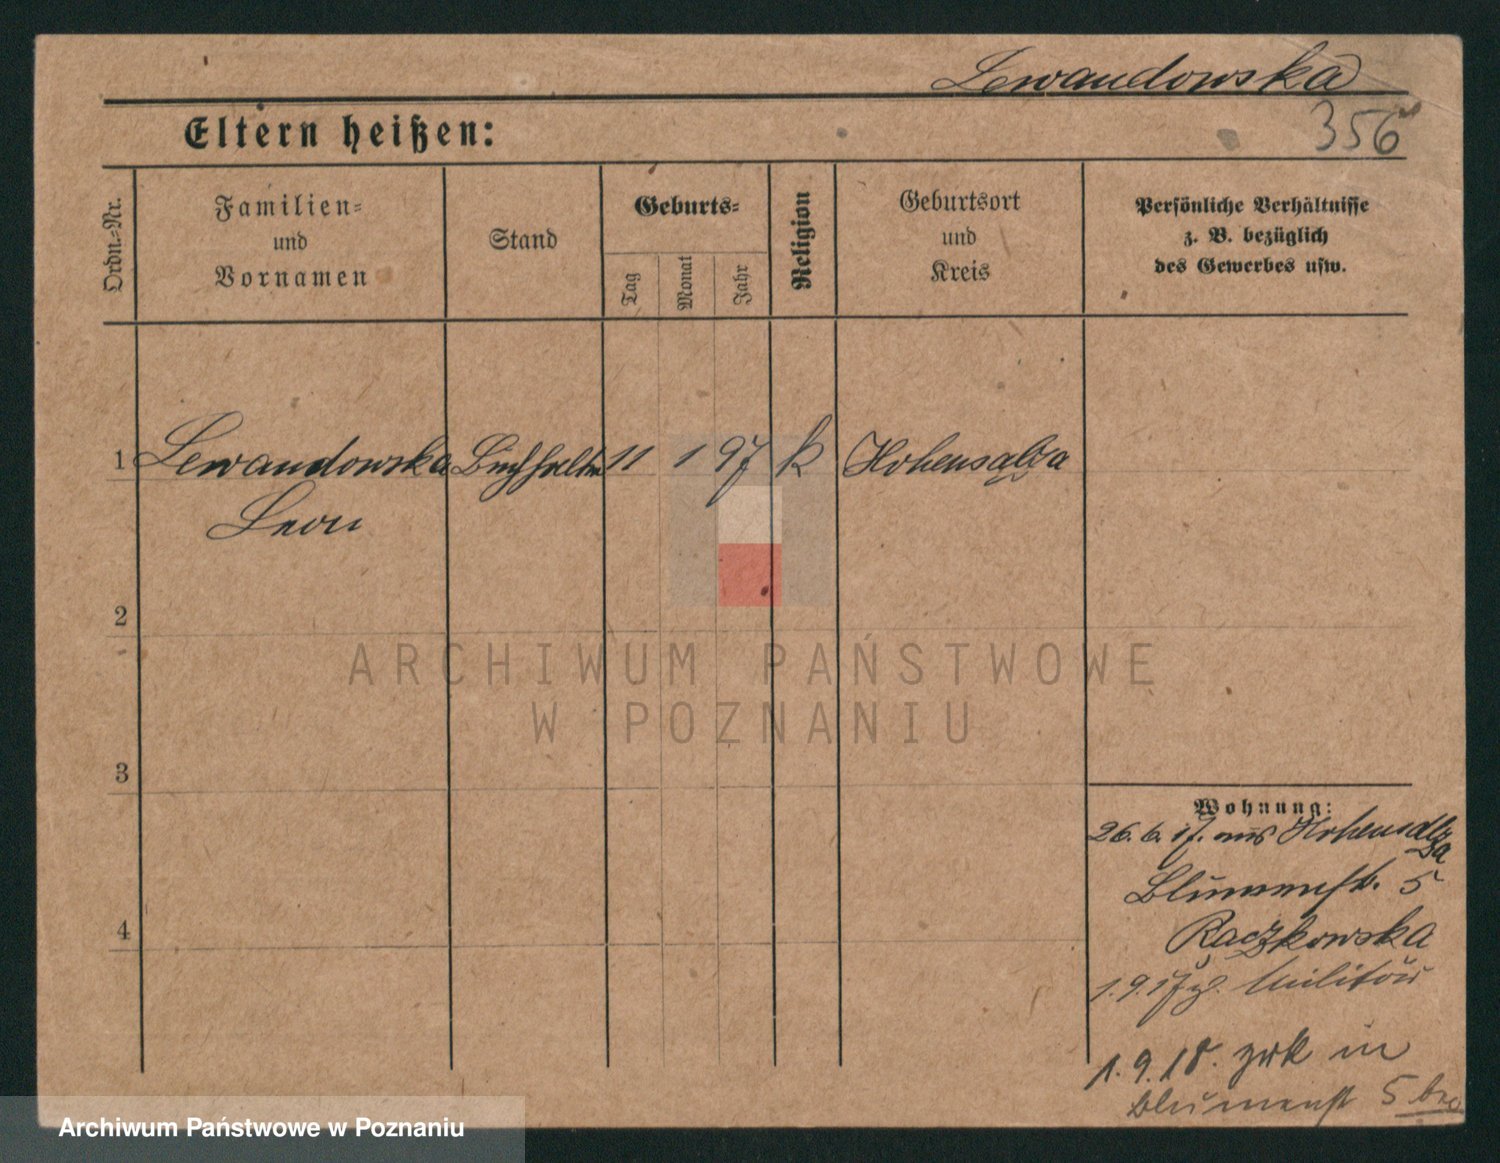 Lewandowska
356
Eltern heißen:
Ordn.-Nr.
Familien-
und
Vornamen
Stand
Geburts-
Tag
Monat
Jahr
Religion
Geburtsort
und
Kreis
Persönliche Verhältnisse
z. B. bezüglich
des Gewerbes usw.
1 Lewandowska Buchhalter 11 1 97 k Hohensalza
Leon
2
ARCHIWUM PAŃSTWOWE
W POZNANIU
3
Wohnung:
26.6.17. aus Hohensalza
Blumenstr. 5
4
Raczkowska
1.9.17 z. Militär
1.9.18. zrk in
Blumenst 5
Archiwum Państwowe w Poznaniu